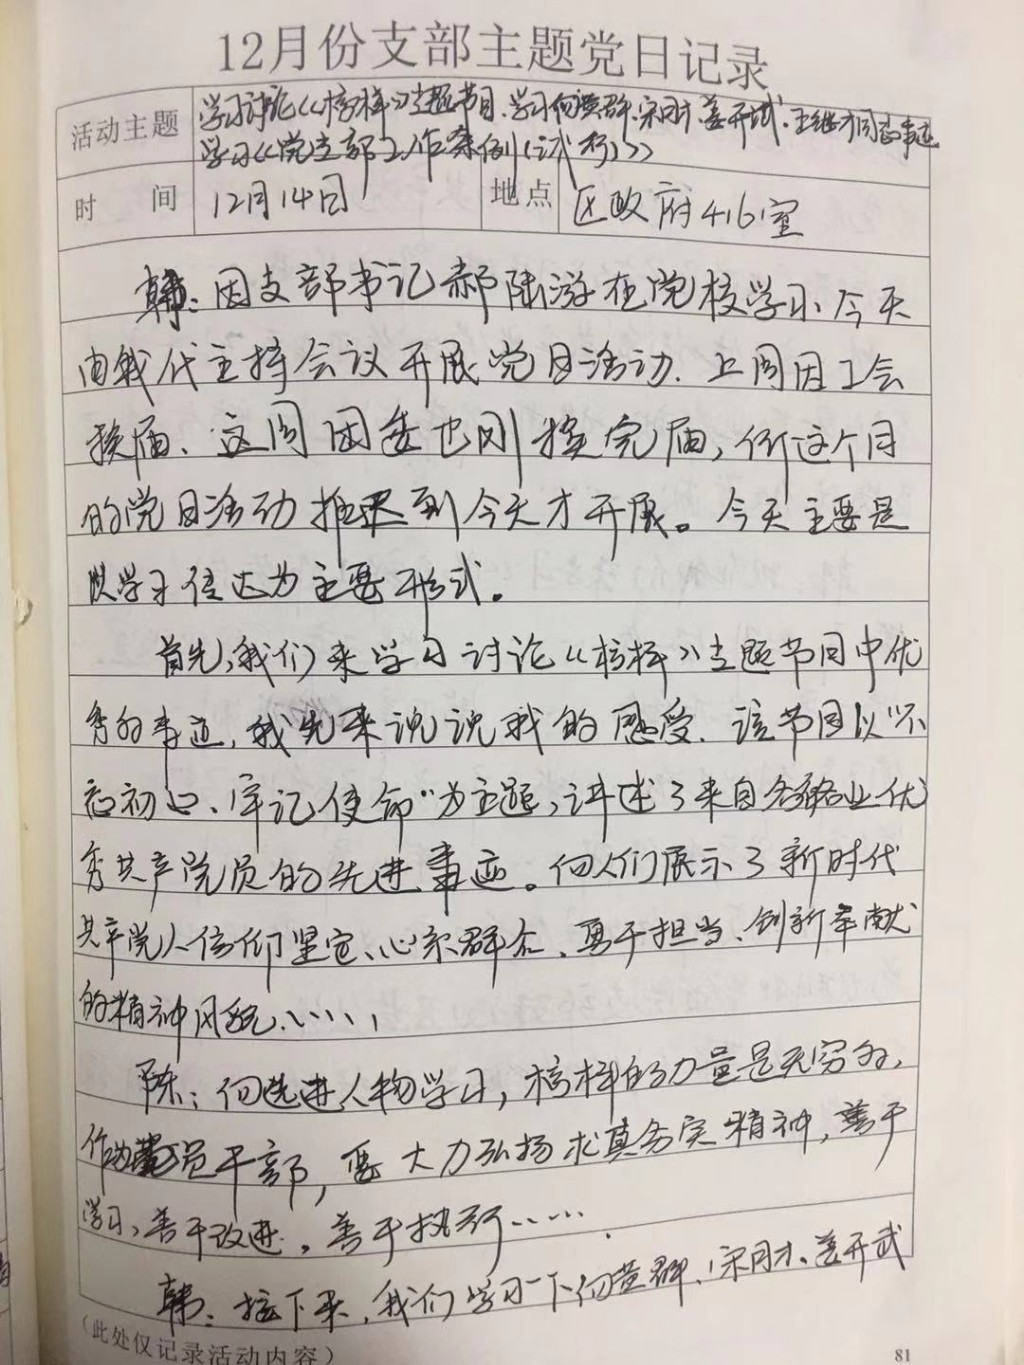 12月份支部主题党日记录
活动主题
学习讨论《榜样》主题节目、学习何黄群、宋月才、姜开斌、王继才同志事迹
学习《党支部工作条例(试行)》
时间 12月14日 地点 区政府416室
韩：因支部书记郝陆游在党校学习、今天
由我代主持会议开展党日活动. 上周因工会
换届、这周团委也刚换完届，所这个月
的党日活动推迟到今天才开展。今天主要是
以学习传达为主要形式。
首先，我们来学习讨论《榜样》主题节目中优
秀的事迹，我先来说说我的感受. 该节目以"不
忘初心、牢记使命"为主题，讲述了来自各行各业优
秀共产党员的先进事迹。向人们展示了新时代
共产党人信仰坚定、心系群众、勇于担当、创新奉献
的精神风貌……
陈：向先进人物学习，榜样的力量是无穷的，
作为党员干部，要大力弘扬求真务实精神，善于
学习、善于改进，善于执行……
韩：接下来，我们学习一下何黄群、宋月才、姜开武
（此处仅记录活动内容）
81